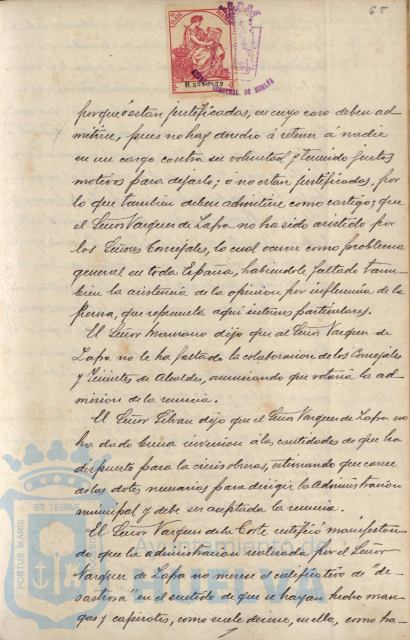 65
MUNICIPAL DE HUELVA
porque ó están justificadas, en cuyo caso deben ad-
mitirse, pues no hay derecho á retener á nadie
en un cargo contra su voluntad y teniendo justos
motivos para dejarlo; ó no estan justificadas, por
lo que tambien deben admitirse como castigo; que
el Señor Vazquez de Zafra no ha sido asistido por
los Señores Concejales, lo cual ocurre como problema
general en toda España, habiendole faltado tam-
bien la asistencia de la opinion por influencia de la
Prensa, que representa aqui intereses particulares.
El Señor Marzano dijo que al Señor Vazquez de
Zafra no le ha faltado la colaboracion de los Concejales
y Tenientes de Alcaldes, anunciando que votaria la ad-
mision de la renuncia.
El Señor Silvan dijo que el Señor Vazquez de Zafra no
ha dado buena inversion á las cantidades de que ha
dispuesto para la crisis obrera, estimando que carece
de las dotes necesarias para dirigir la Administracion
municipal y debe ser aceptada la renuncia.
El Señor Vazquez de la Corte rectificó manifestan-
do que la administracion realizada por el Señor
Vazquez de Zafra no merece el calificativo de "de-
sastrosa" en el sentido de que se hayan hecho man-
gas y capirotes, como suele decirse, en ella, como ha-
PORTUS MARIS ET TERRAE